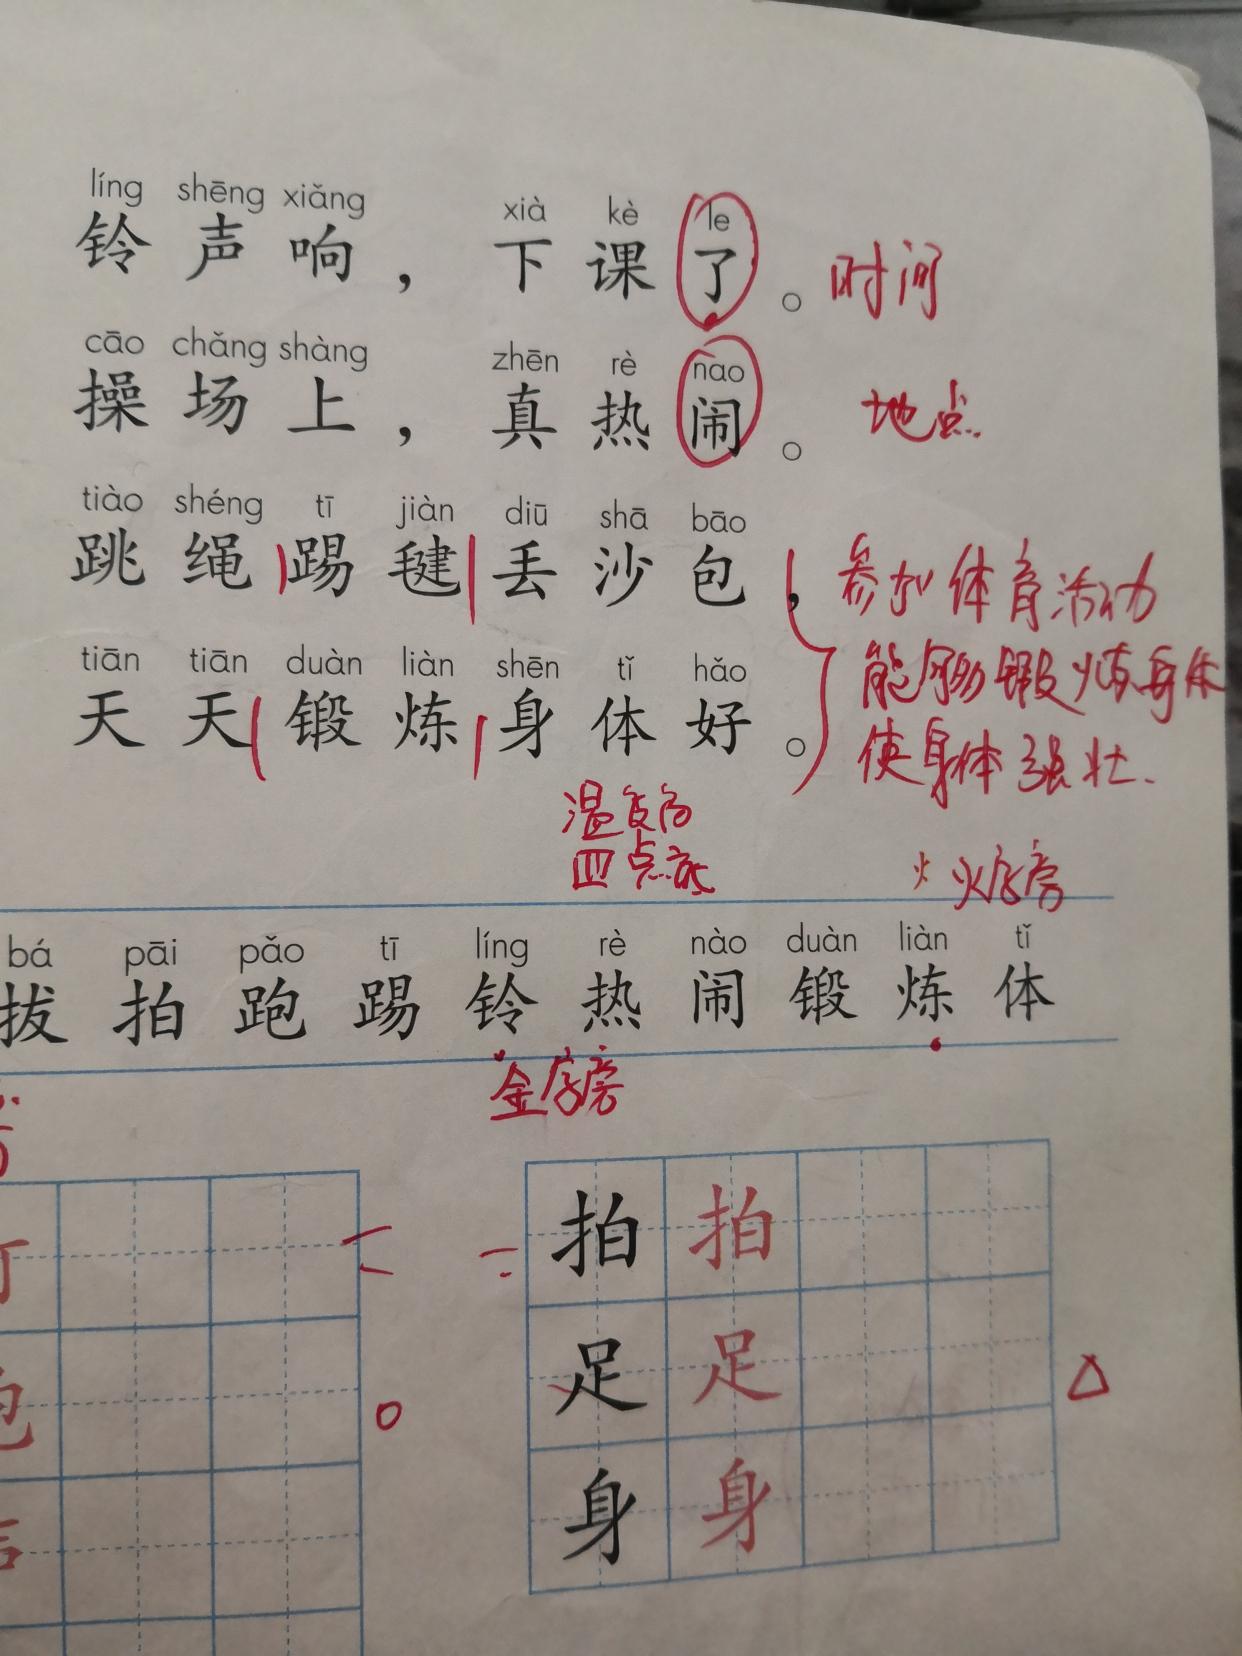 líng shēng xiǎng xià kè le
铃声响，下课了。时间
cāo chǎng shàng zhēn rè nao
操场上，真热闹。地点
tiào shéng tī jiàn diū shā bāo
跳绳踢毽丢沙包，参加体育活动
tiān tiān duàn liàn shēn tǐ hǎo
天天锻炼身体好。能够锻炼身体
使身体强壮.
四点底
火 火字旁
bá pāi pǎo tī líng rè nào duàn liàn tǐ
拔 拍 跑 踢 铃 热 闹 锻 炼 体
金字旁
拍 拍
足 足
身 身